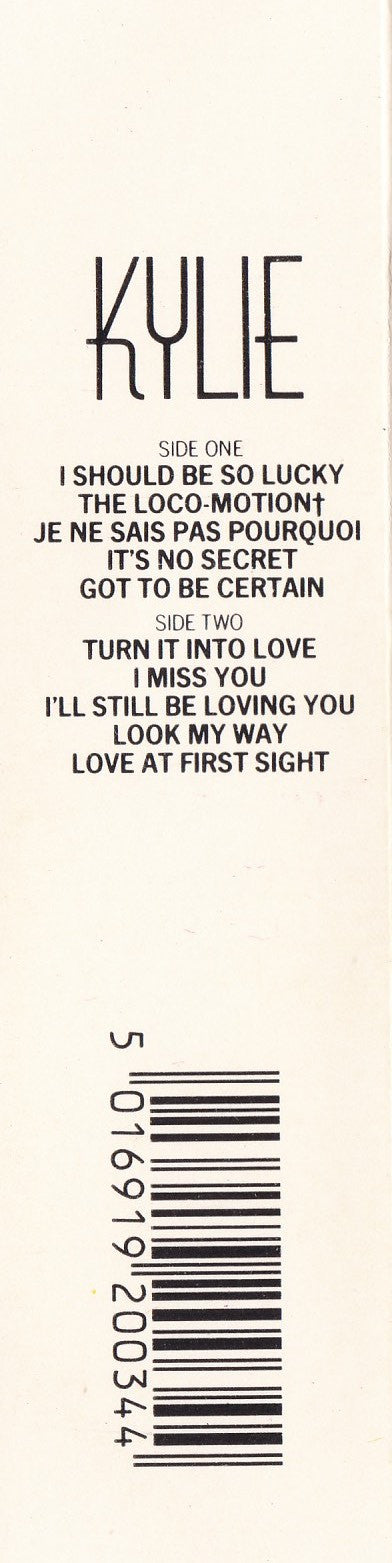 KYLIE
SIDE ONE
I SHOULD BE SO LUCKY
THE LOCO-MOTION†
JE NE SAIS PAS POURQUOI
IT'S NO SECRET
GOT TO BE CERTAIN
SIDE TWO
TURN IT INTO LOVE
I MISS YOU
I'LL STILL BE LOVING YOU
LOOK MY WAY
LOVE AT FIRST SIGHT
5 016919 200344